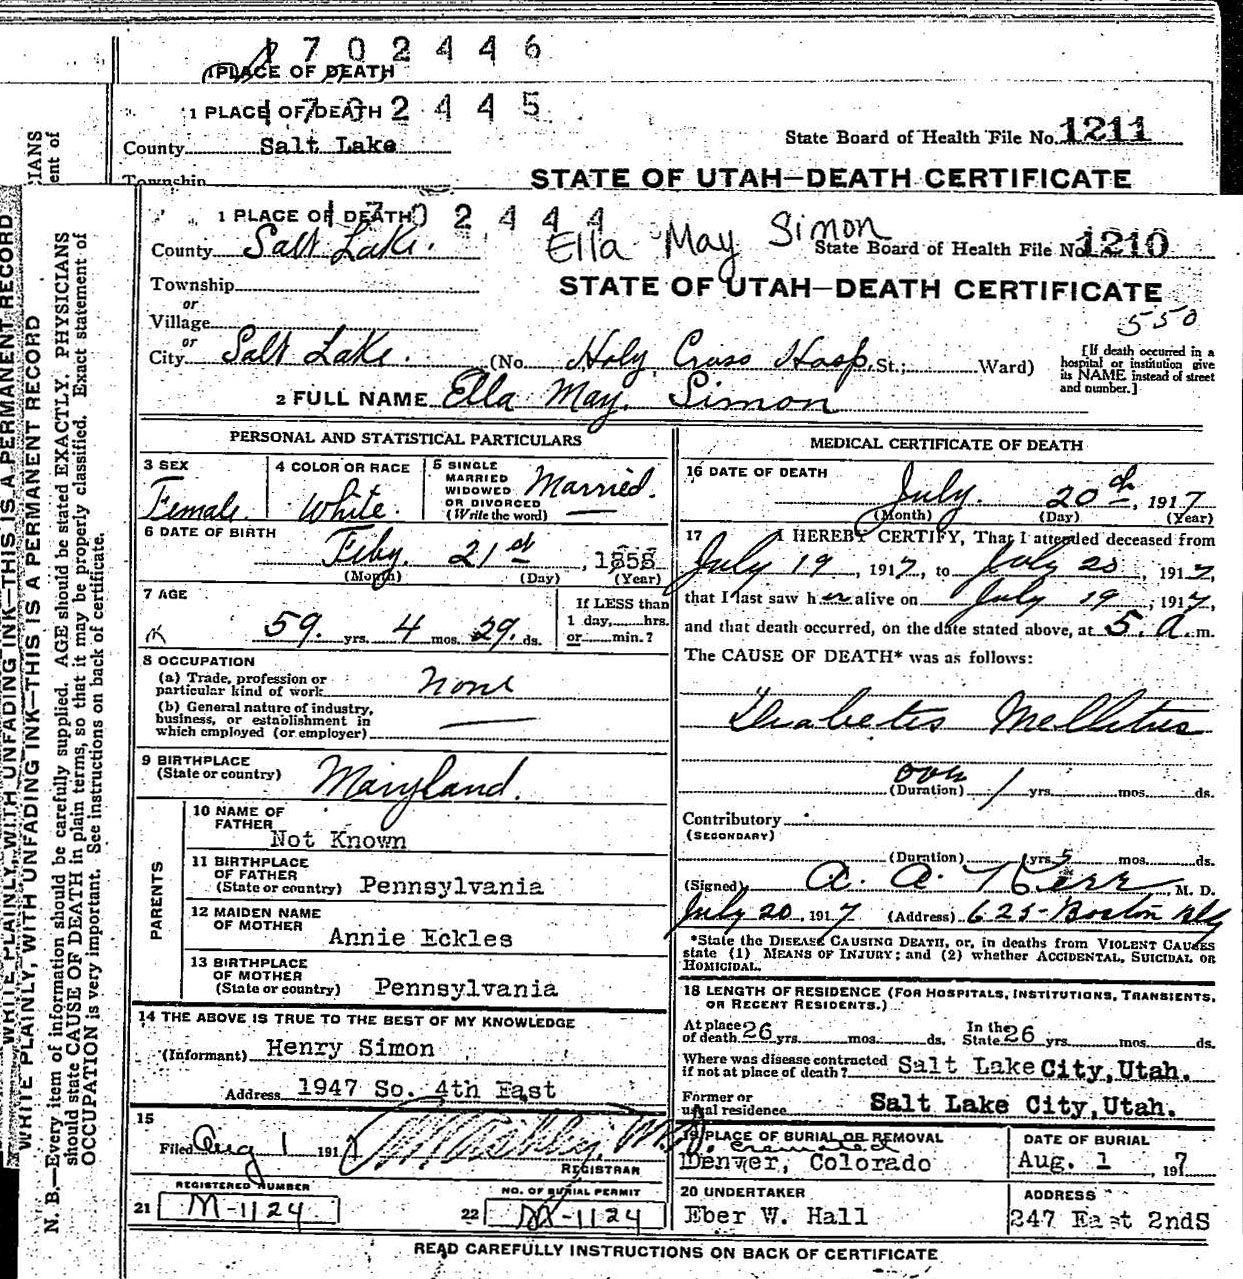 1702446
1 PLACE OF DEATH
1702445
1 PLACE OF DEATH
State Board of Health File No. 1211
County Salt Lake
Township
STATE OF UTAH—DEATH CERTIFICATE
1702444
1 PLACE OF DEATH
Ella May Simon
County Salt Lake.
State Board of Health File No. 1210
Township
STATE OF UTAH—DEATH CERTIFICATE
or
Village
550
or
City Salt Lake. (No. Holy Cross Hosp. St.; Ward)
[If death occurred in a
hospital or institution give
its NAME instead of street
and number.]
2 FULL NAME Ella May. Simon
PERSONAL AND STATISTICAL PARTICULARS
3 SEX
Female
4 COLOR OR RACE
White.
5 SINGLE
MARRIED
WIDOWED
OR DIVORCED
(Write the word)
Married.
6 DATE OF BIRTH
Feby. 21st, 1858
(Month) (Day) (Year)
7 AGE
59. yrs. 4 mos. 29. ds.
If LESS than
1 day, hrs.
or min.?
8 OCCUPATION
(a) Trade, profession or
particular kind of work none
(b) General nature of industry,
business, or establishment in
which employed (or employer)
9 BIRTHPLACE
(State or country) Maryland.
PARENTS
10 NAME OF
FATHER
Not Known
11 BIRTHPLACE
OF FATHER
(State or country) Pennsylvania
12 MAIDEN NAME
OF MOTHER
Annie Eckles
13 BIRTHPLACE
OF MOTHER
(State or country) Pennsylvania
14 THE ABOVE IS TRUE TO THE BEST OF MY KNOWLEDGE
(Informant) Henry Simon
Address 1947 So. 4th East
15
Filed Aug 1 1917
REGISTRAR
REGISTERED NUMBER
21 M-1124
NO. OF BURIAL PERMIT
22 M-1124
MEDICAL CERTIFICATE OF DEATH
16 DATE OF DEATH
July. 20th, 1917
(Month) (Day) (Year)
17 I HEREBY CERTIFY, That I attended deceased from
July 19, 1917, to July 20, 1917,
that I last saw her alive on July 19, 1917,
and that death occurred, on the date stated above, at 5. a. m.
The CAUSE OF DEATH* was as follows:
Diabetes Mellitus
over
(Duration) 1 yrs. mos. ds.
Contributory
(SECONDARY)
(Duration) yrs. mos. ds.
(Signed) A. A. Kerr, M. D.
July 20, 1917 (Address) 625-Boston Blg
*State the DISEASE CAUSING DEATH, or, in deaths from VIOLENT CAUSES
state (1) MEANS OF INJURY; and (2) whether ACCIDENTAL, SUICIDAL OR
HOMICIDAL.
18 LENGTH OF RESIDENCE (FOR HOSPITALS, INSTITUTIONS, TRANSIENTS,
OR RECENT RESIDENTS.)
At place
of death 26 yrs. mos. ds.
In the
State 26 yrs. mos. ds.
Where was disease contracted
if not at place of death? Salt Lake City, Utah.
Former or
usual residence Salt Lake City, Utah.
19 PLACE OF BURIAL OR REMOVAL
Cremated
Denver, Colorado
DATE OF BURIAL
Aug. 1, 1917
20 UNDERTAKER
Eber W. Hall
ADDRESS
247 East 2ndS
READ CAREFULLY INSTRUCTIONS ON BACK OF CERTIFICATE
WRITE PLAINLY, WITH UNFADING INK—THIS IS A PERMANENT RECORD
WRITE PLAINLY, WITH UNFADING INK—THIS IS A PERMANENT RECORD
N. B.—Every item of information should be carefully supplied. AGE should be stated EXACTLY. PHYSICIANS
should state CAUSE OF DEATH in plain terms, so that it may be properly classified. Exact statement of
OCCUPATION is very important. See instructions on back of certificate.
IANS
ent of